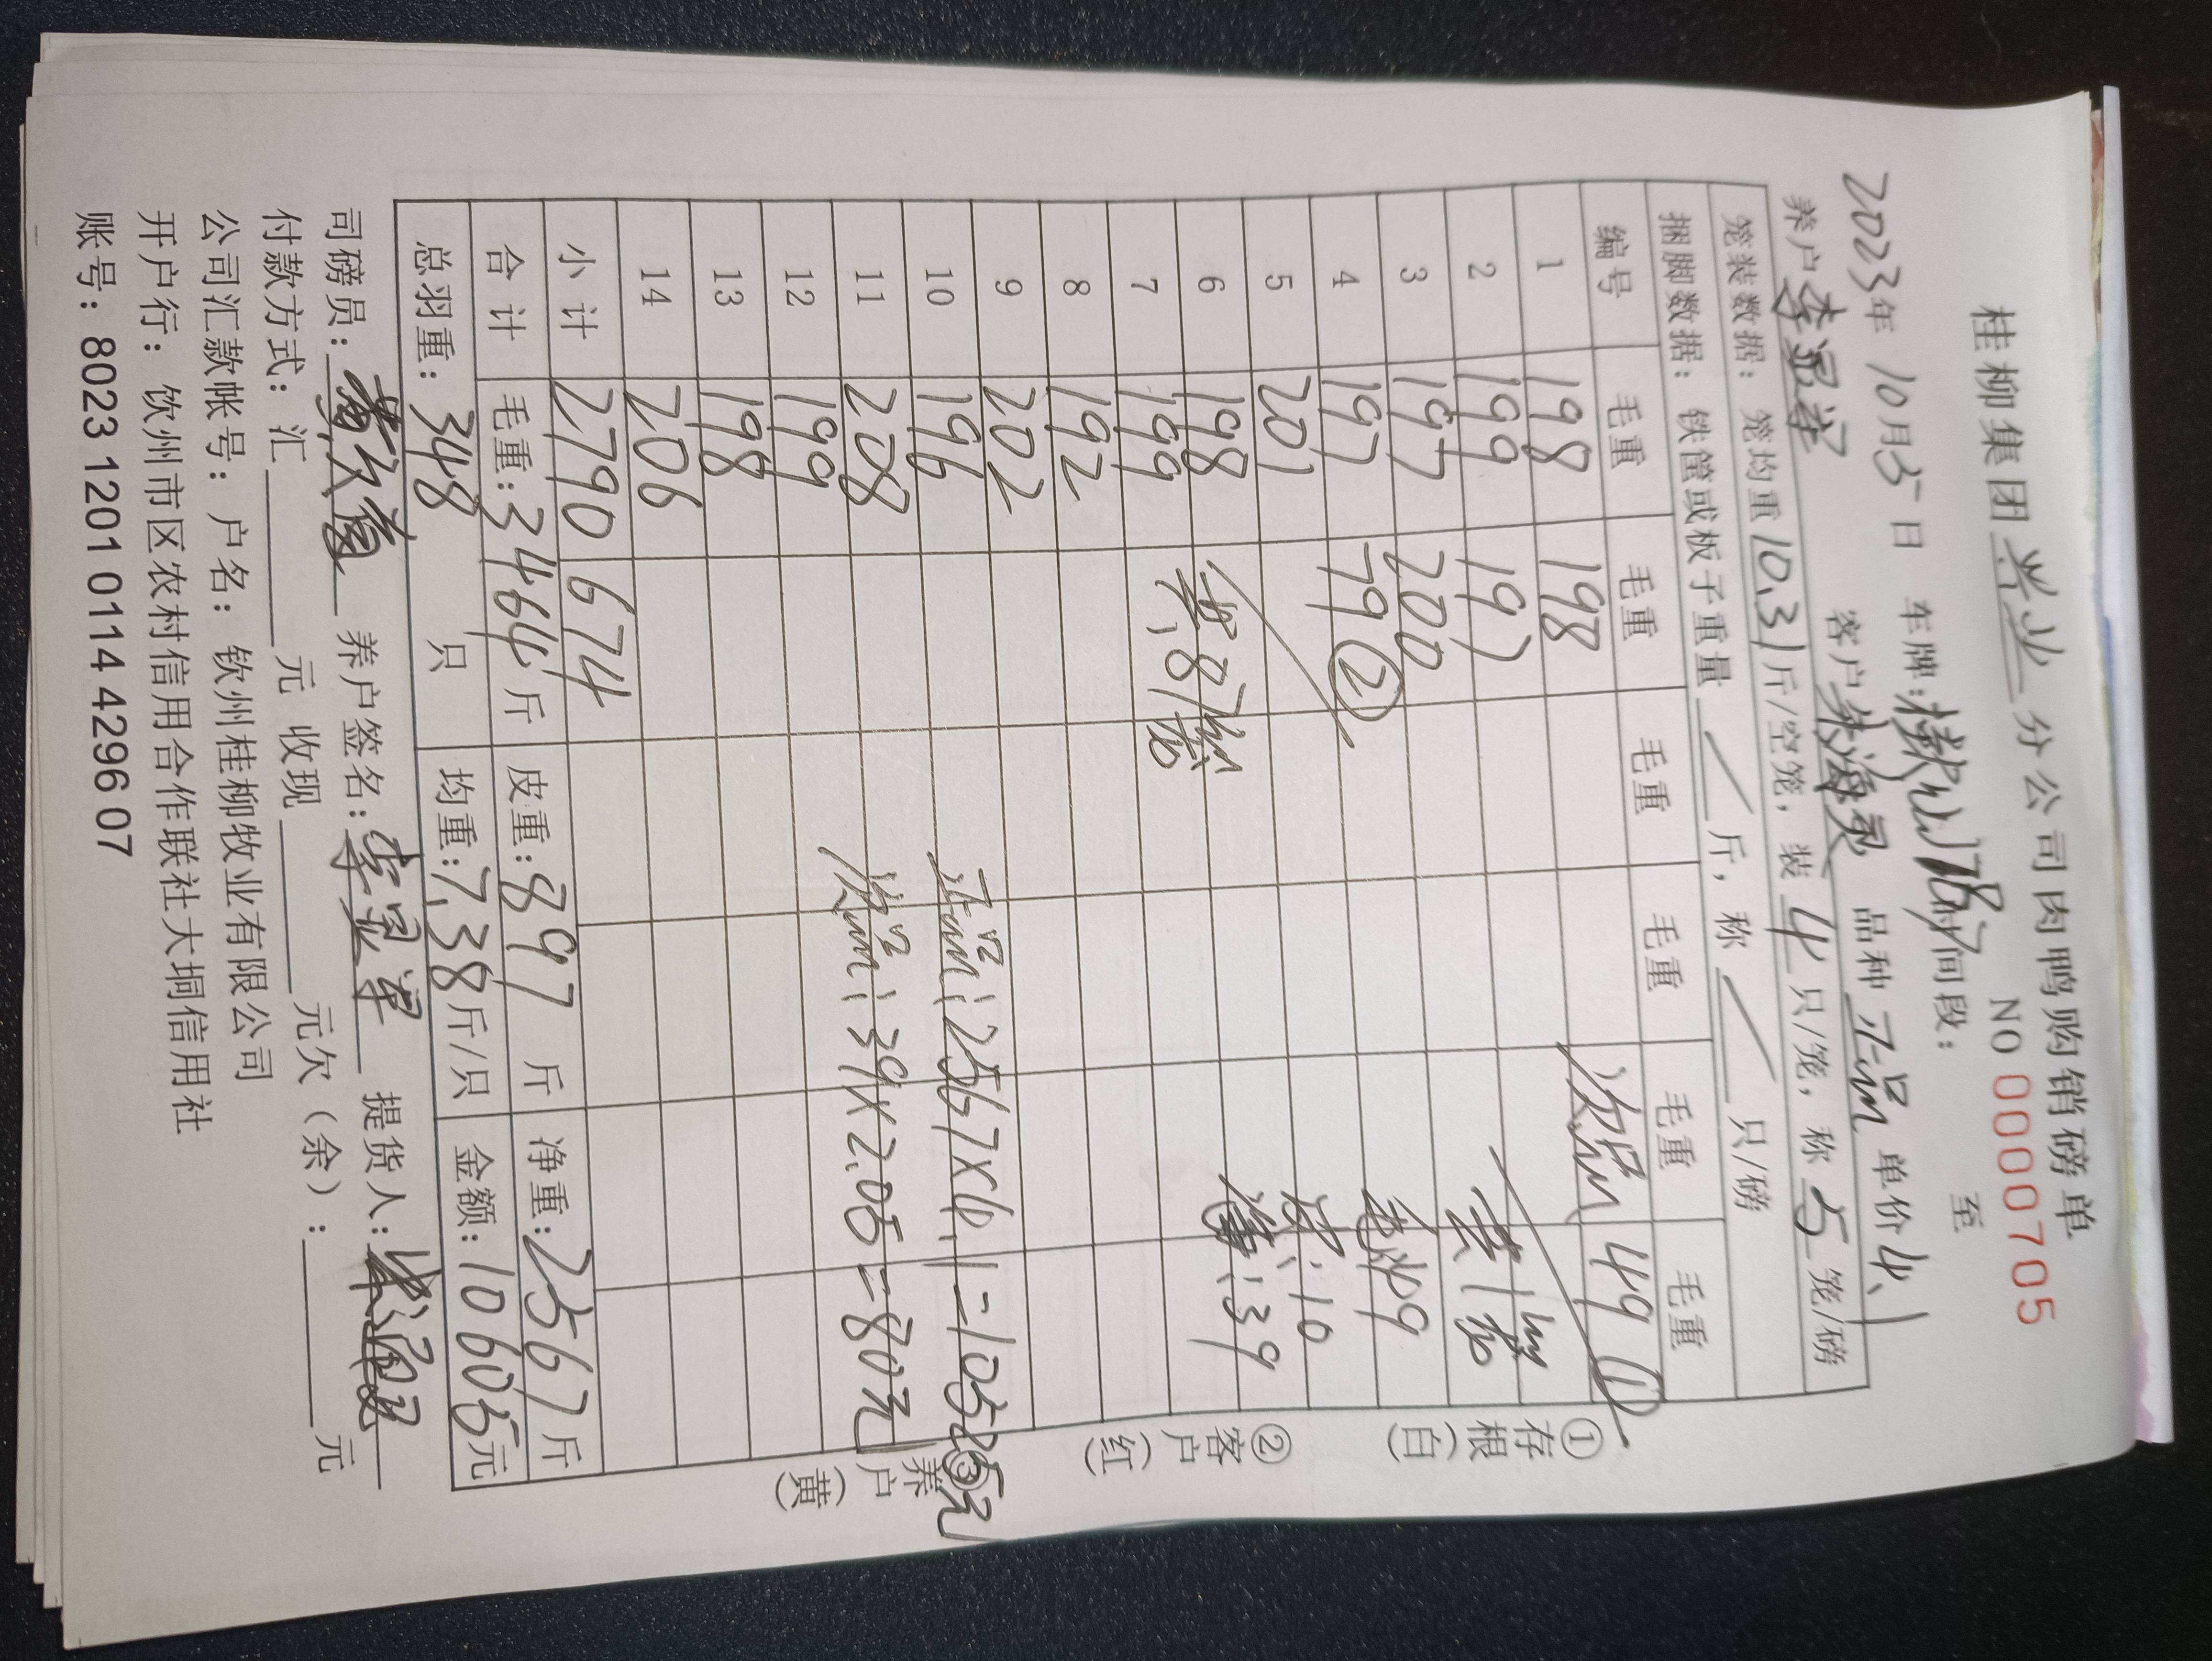 桂柳集团兴业分公司肉鸭购销磅单
NO 0000705
2023年10月5日 车牌: 时间段: 至
养户 客户 品种正品 单价4.1
笼装数据: 笼均重10.31斤/空笼, 装4只/笼, 称5笼/磅
捆脚数据: 铁筐或板子重量/斤, 称/只/磅
编号 毛重 毛重 毛重 毛重 毛重 毛重
1 198 198 次品 49 ①
2 199 197 共1笼
3 197 200 毛49
4 197 79② 皮:10
5 201 净:39
6 198 共:87笼
7 199
8 192
9 202
10 196 正品:2567×4.1=10525元
11 208 次品:39×2.05=80元
12 199
13 198
14 206
小计 2790 674
合计 毛重:3464斤 皮重:897斤 净重:2567斤
总羽重: 348只 均重:7.38斤/只 金额:10605元
司磅员: 养户签名: 提货人:
付款方式: 汇 元 收现 元欠(余): 元
公司汇款帐号: 户名: 钦州桂柳牧业有限公司
开户行: 钦州市区农村信用合作联社大垌信用社
账号: 8023 1201 0114 4296 07
①存根(白) ②客户(红) ③养户(黄)